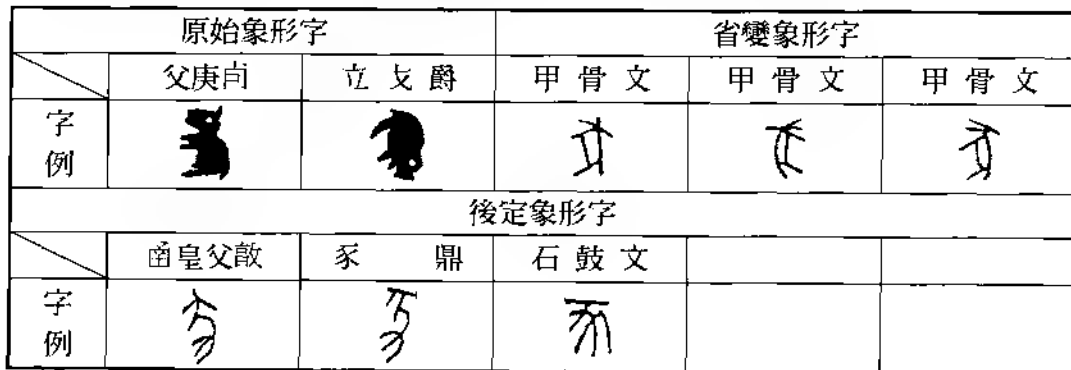 原始象形字 省變象形字
父庚卣 立戈爵 甲骨文 甲骨文 甲骨文
字例
後定象形字
圅皇父𣪘 豕鼎 石鼓文
字例